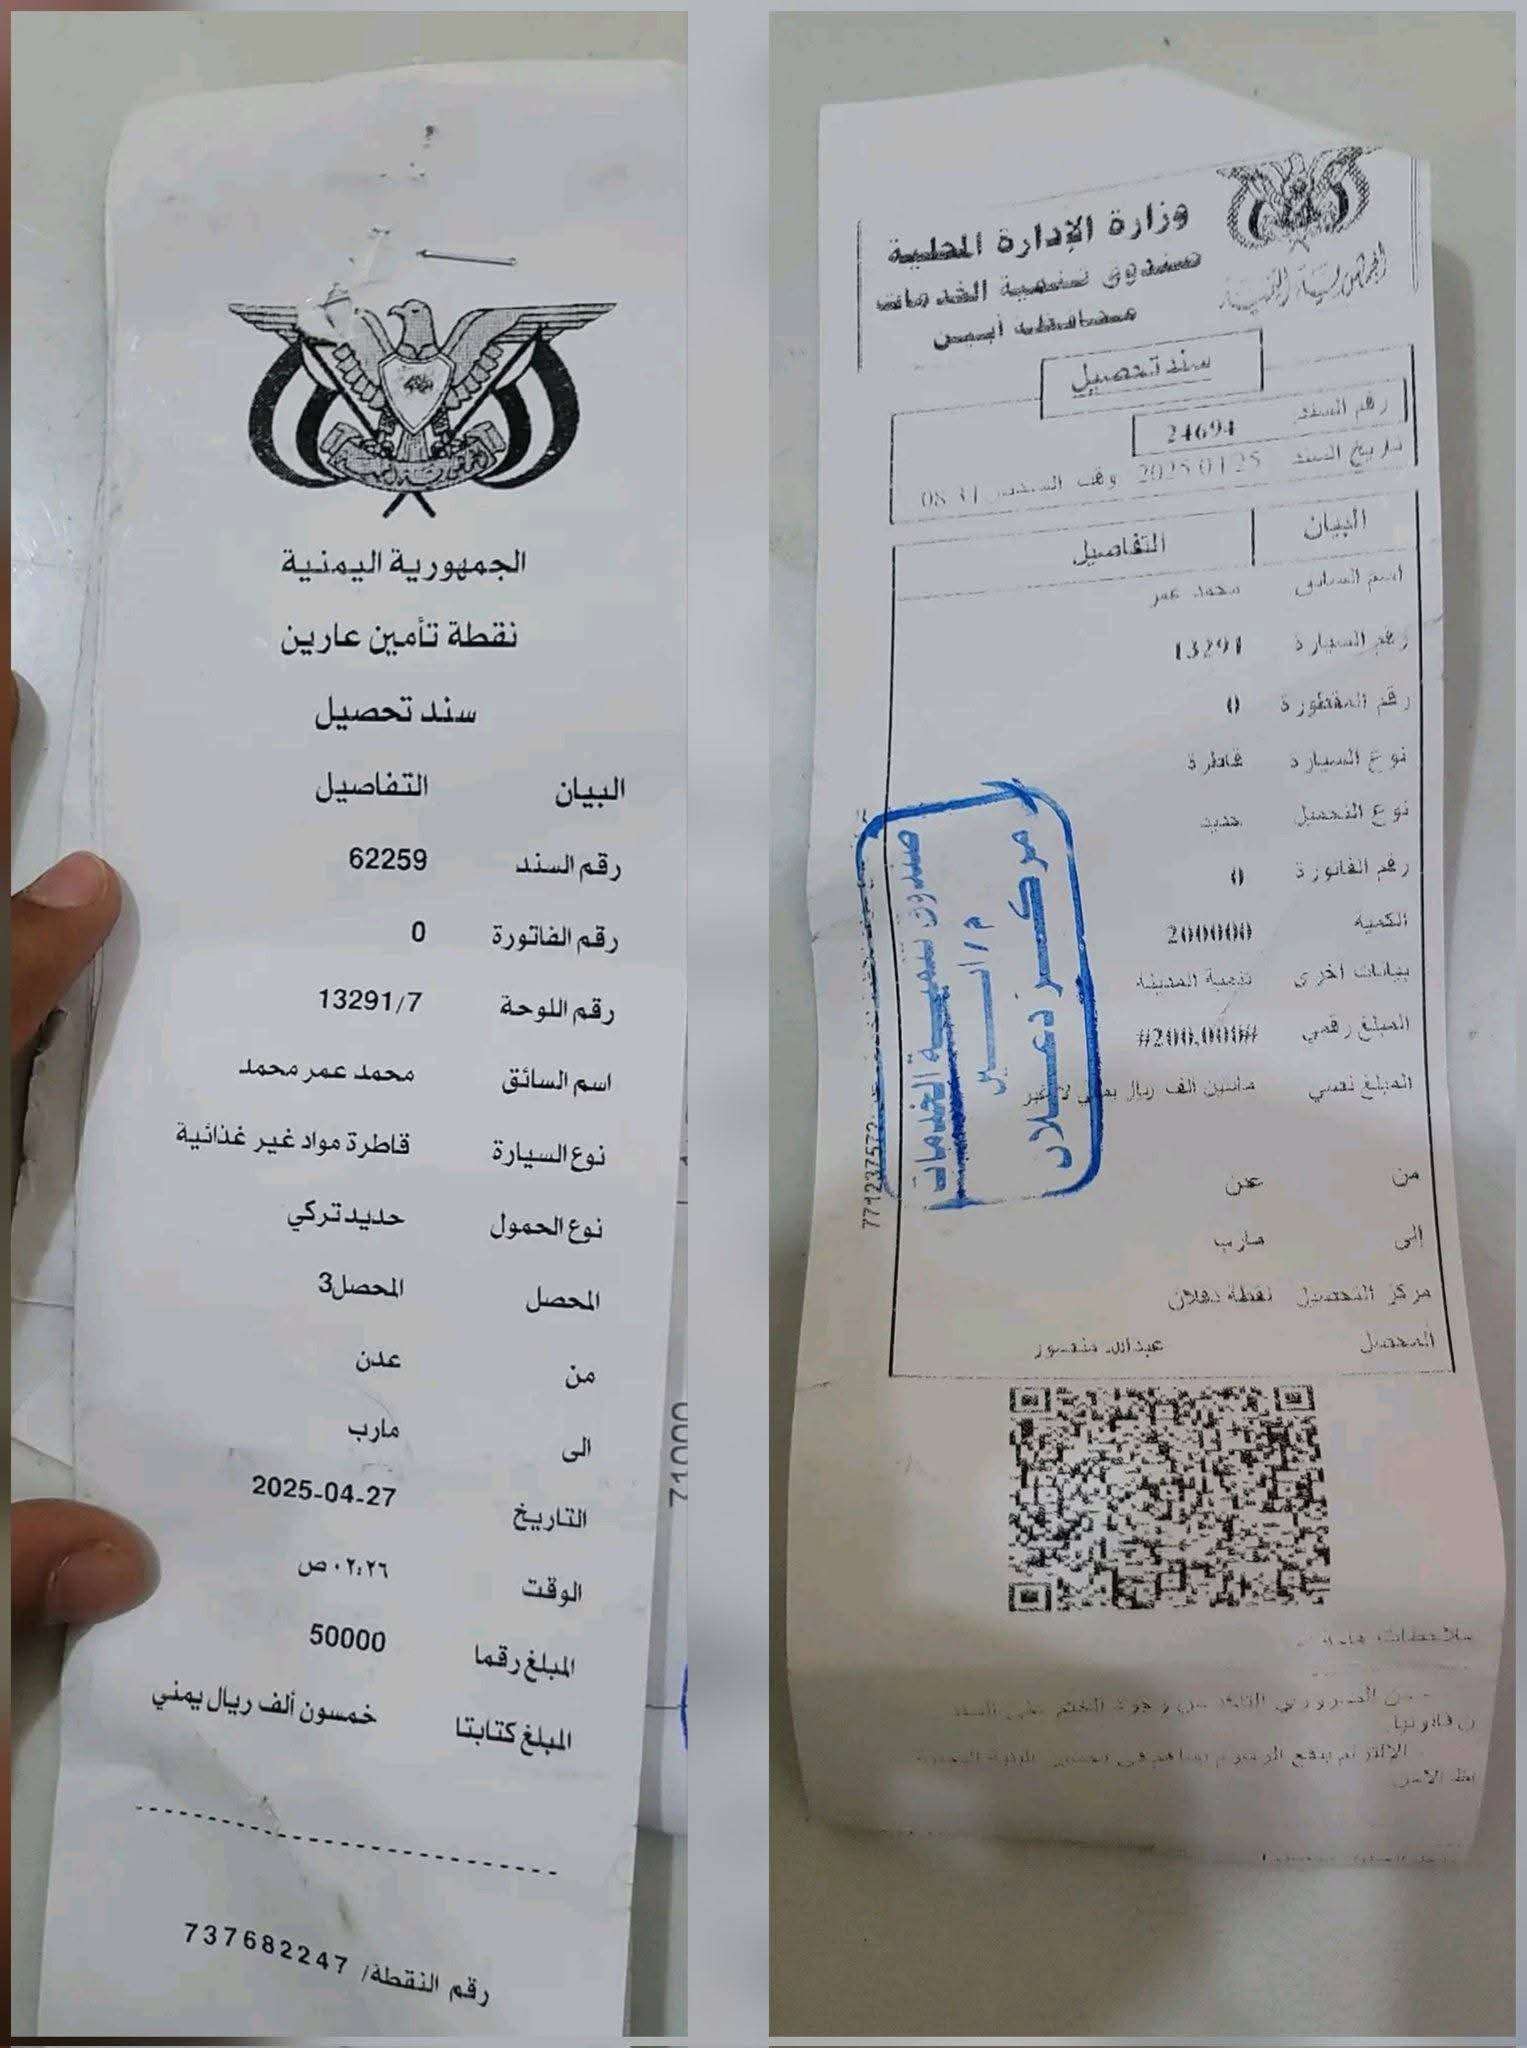 الجمهورية اليمنية
نقطة تأمين عارين
سند تحصيل
البيان التفاصيل
رقم السند 62259
رقم الفاتورة 0
رقم اللوحة 13291/7
اسم السائق محمد عمر محمد
نوع السيارة قاطرة مواد غير غذائية
نوع الحمول حديد تركي
المحصل المحصل3
من عدن
الى مارب
التاريخ 2025-04-27
الوقت ٠٢:٢٦ ص
المبلغ رقما 50000
المبلغ كتابتا خمسون ألف ريال يمني
رقم النقطة/ 737682247
71000
الجمهورية اليمنية
وزارة الإدارة المحلية
صندوق تنمية الخدمات
محافظة أبين
سند تحصيل
رقم السند 24694
تاريخ السند 2025 01 25 وقت السند 08:31
البيان التفاصيل
اسم السائق محمد عمر
رقم السيارة 13291
رقم المقطورة 0
نوع السيارة قاطرة
نوع التحصيل حديد
رقم الفاتورة 0
الكمية 200000
بيانات اخرى تنمية المدينة
المبلغ رقمي #200,000#
المبلغ نصي مأتين الف ريال يمني لا غير
من عدن
إلى مارب
مركز التحصيل نقطة دهلان
المحصل عبدالله منصور
صندوق تنمية الخدمات
م/ابين
771237572
من الضروري التأكد من وجود الختم على السند
الإلتزام بدفع الرسوم يساهم في تحسين البنية التحتية